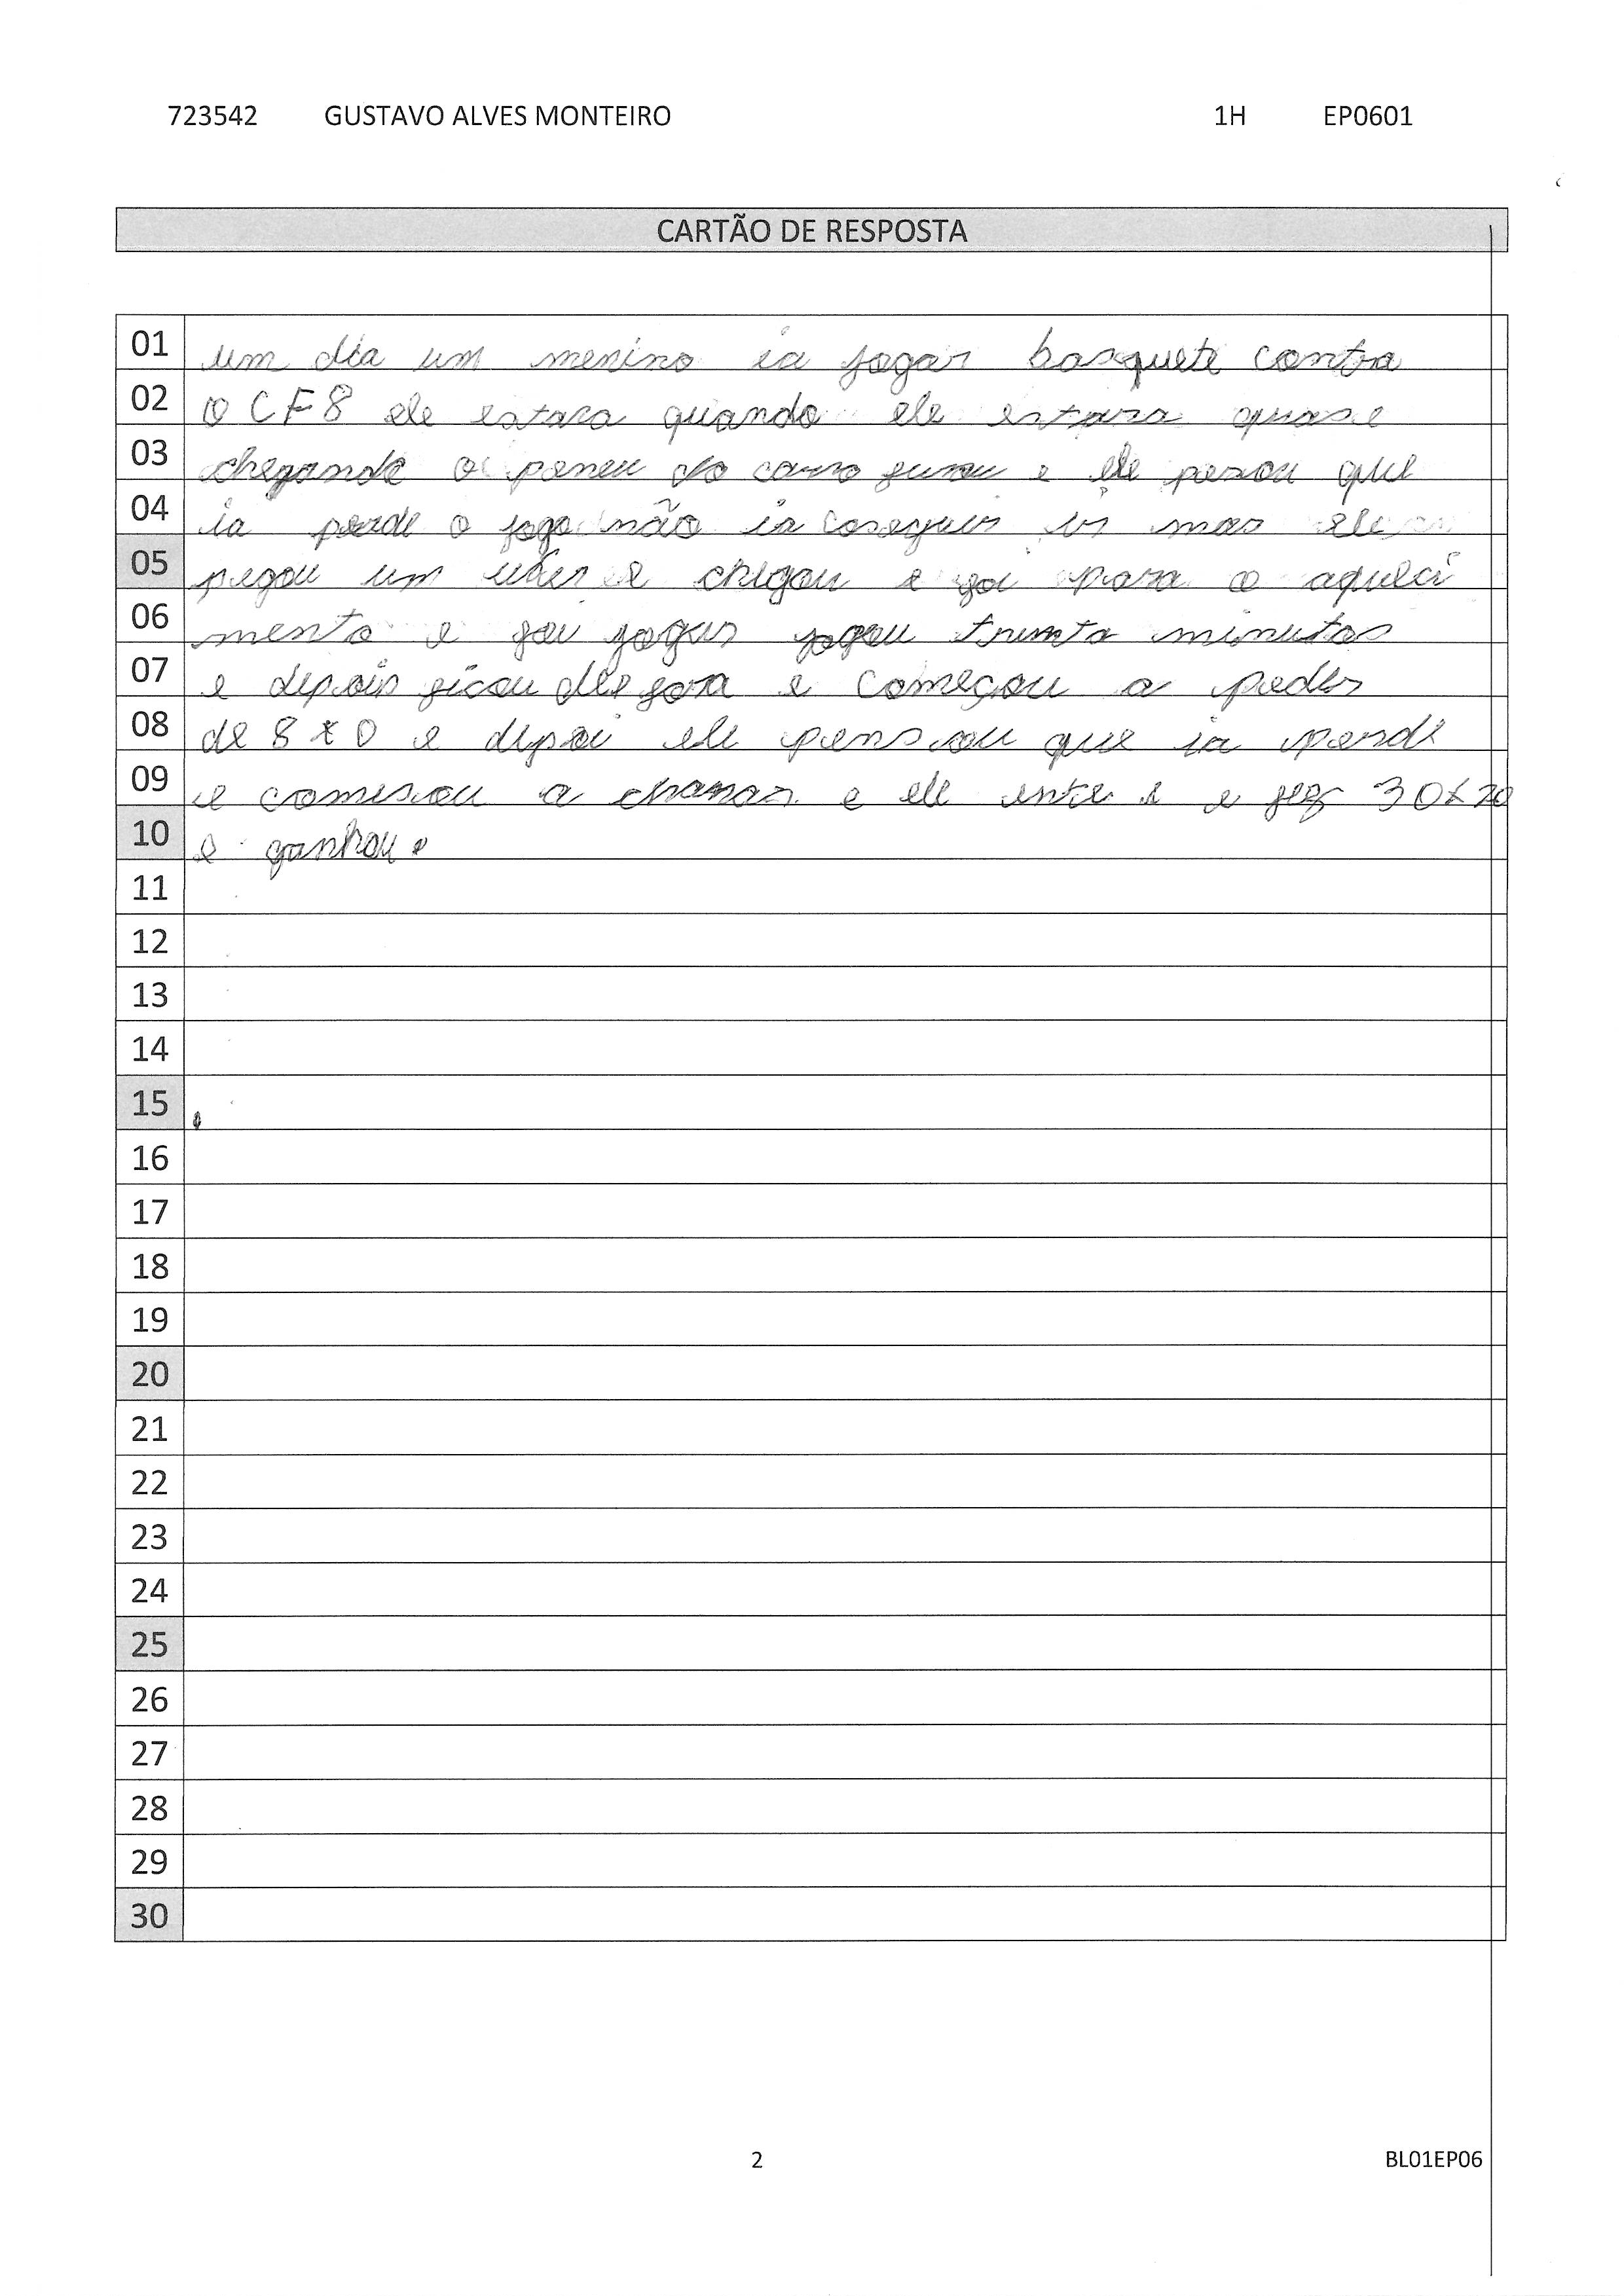 723542 GUSTAVO ALVES MONTEIRO 1H EP0601
CARTÃO DE RESPOSTA
01 um dia um menino ia jogar basquete contra
02 o CF8 ele estava quando ele estava quase
03 chegando o peneu do carro furou e ele pesou que
04 ia perde o jogo não ia coseguir ir mas ele
05 pegou um uber e chegou e foi para o aqueci
06 mento e foi jogar jogou trinta minutos
07 e depois ficou de fora e começou a peder
08 de 8 x 0 e depoi ele pensou que ia perde
09 e comesou a e ele e fez 30x20
10 e ganhou.
11
12
13
14
15
16
17
18
19
20
21
22
23
24
25
26
27
28
29
30
2 BL01EP06